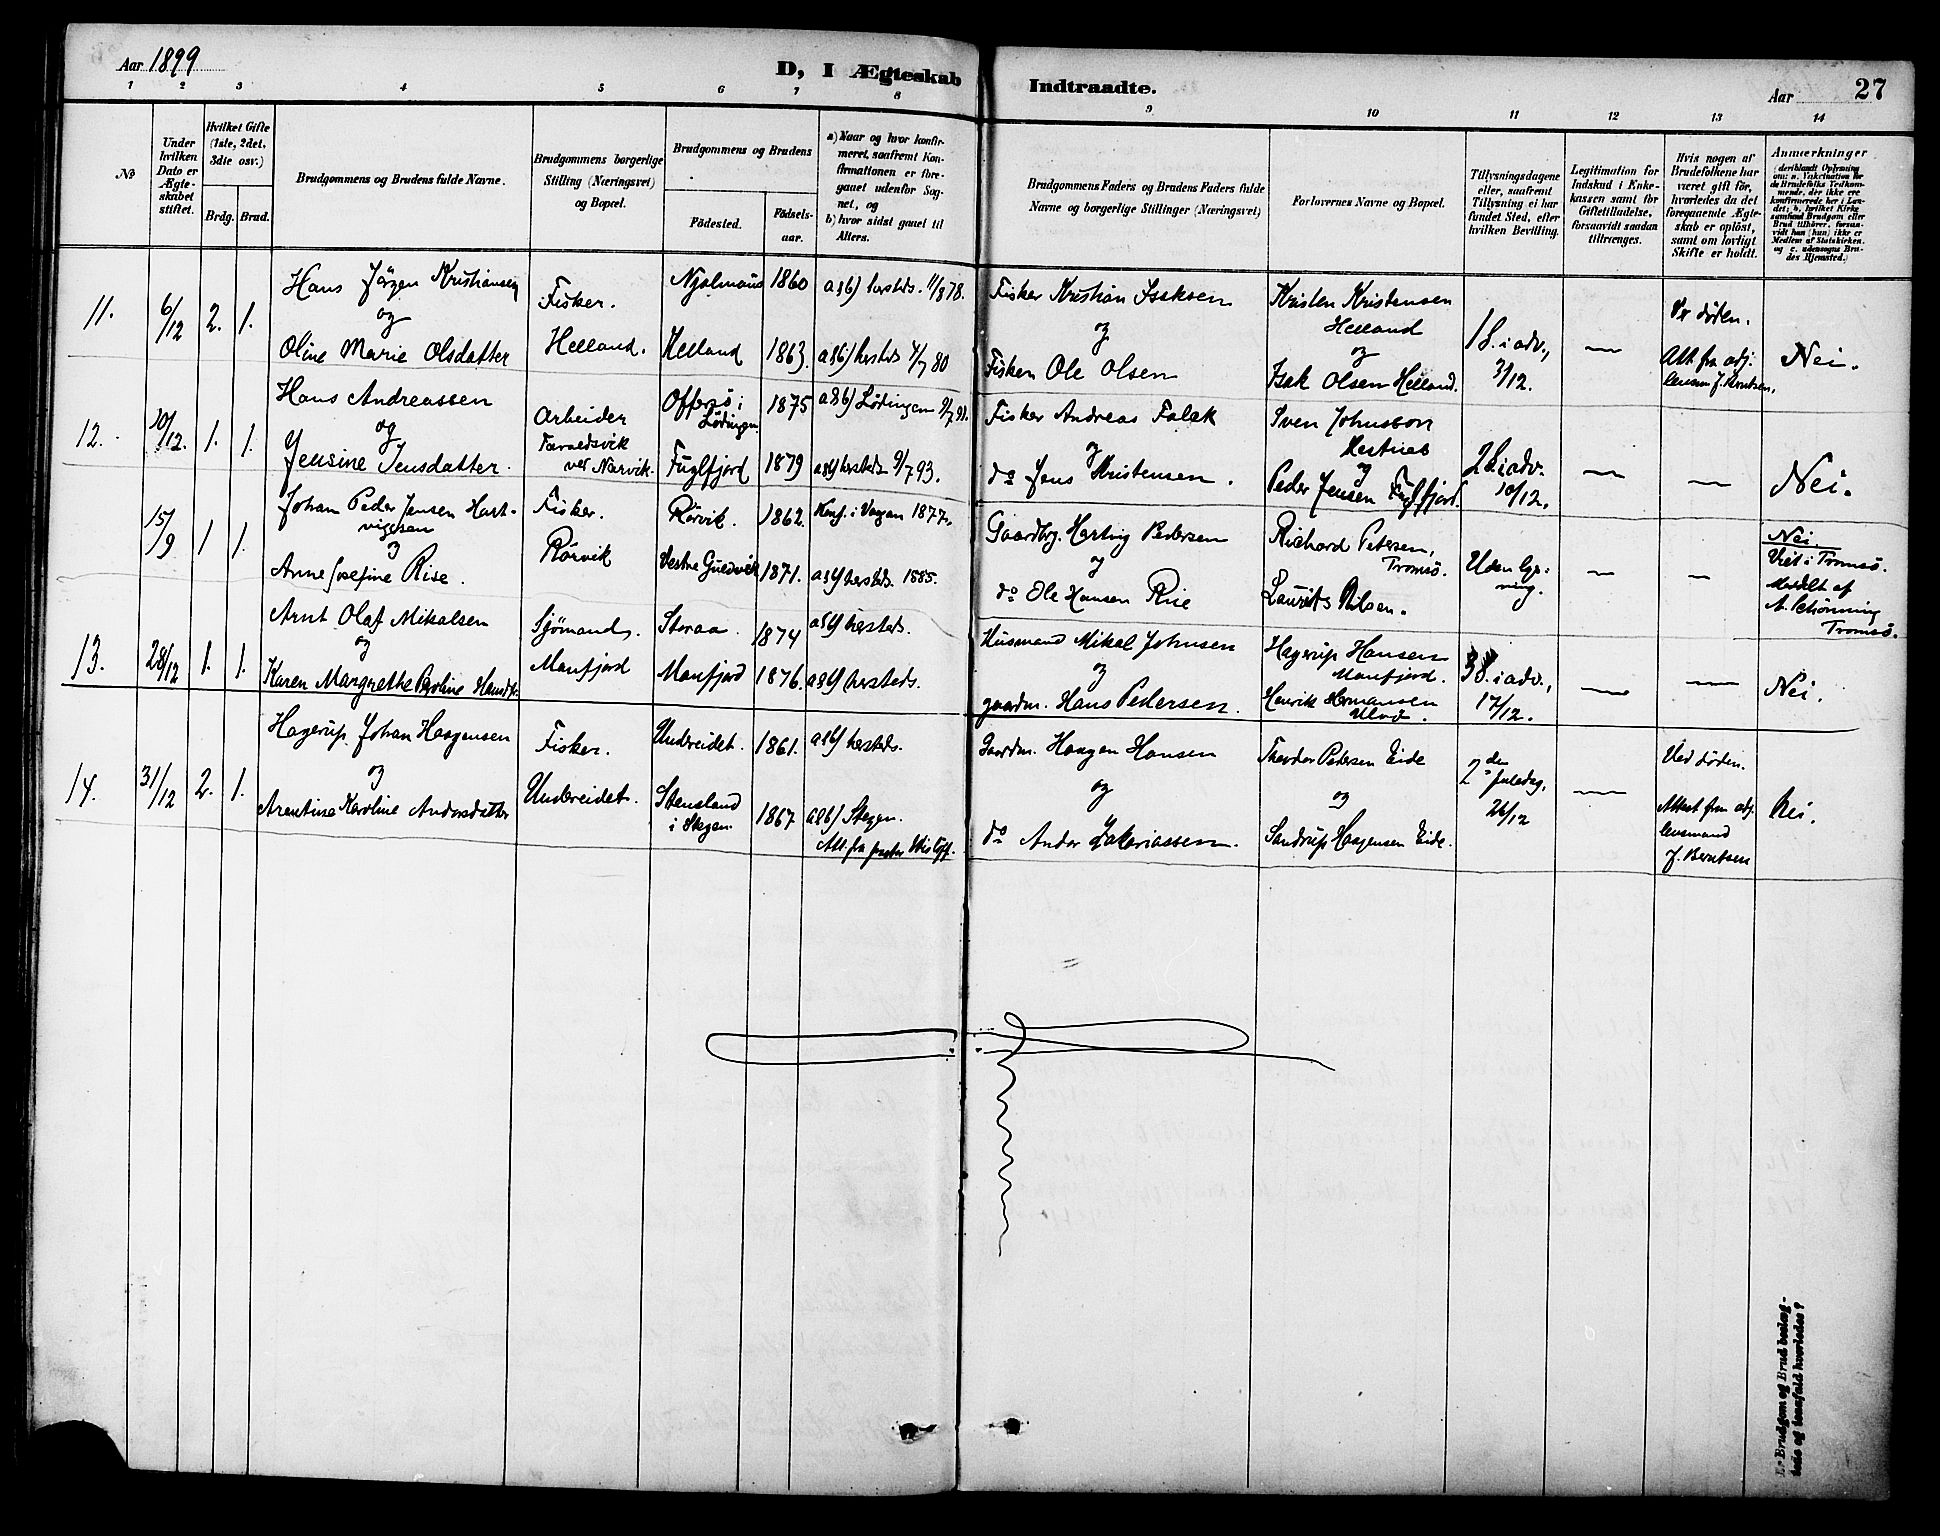 Aar 1899
D, I Ægteskab Indtraadte.
Aar 27
1 2 3 4 5 6 7 8 9 10 11 12 13 14
No
Under hvilken Dato er Ægteskabet stiftet.
Hvilket Gifte (1ste, 2det, 3die osv.)
Brdg. Brud.
Brudgommens og Brudens fulde Navne.
Brudgommens borgerlige Stilling (Næringsvei) og Bopæl.
Brudgommens og Brudens
Födested. Födselsaar.
a) Naar og hvor konfirmeret, saafremt Konfirmationen er foregaaet udenfor Sognet, og
b) hvor sidst gaaet til Alters.
Brudgommens Faders og Brudens Faders fulde Navne og borgerlige Stillinger (Næringsvei)
Forlovernes Navne og Bopæl.
Tillysningsdagene eller, saafremt Tillysning ei har fundet Sted, efter hvilken Bevilling.
Legitimation for Indskud i Enkekassen samt for Giftetilladelse, forsaavidt saadan tiltrænges.
Hvis nogen af Brudefolkene har været gift för, hvorledes da det foregaaende Ægteskab er oplöst, samt om lovligt Skifte er holdt.
Anmærkninger
11. 6/12 2. 1.
Hans Jörgen Kristiansen
og
Oline Marie Olsdatter
Fisker.
Helland.
Njalmäus 1860
Helland 1863.
a & b) hersteds. 11/8 78.
a & b) hersteds 4/7 80
Fisker Kristian Isaksen
og
Fisker Ole Olsen
Kristen Kristensen
Helland
og
Isak Olsen Helland.
1 S. i adv.,
3/12.
—
Ved döden.
Att. fra adj.
lensm J. Berntsen.
Nei.
12. 10/12. 1. 1.
Hans Andreassen
og
Jensine Jensdatter.
Arbeider
ved Narvik.
Offersö i
Lödingen 1875
Fuglfjord 1879
a & b) Lödingen 9/7 91.
a & b) hersteds 9/7 93.
Fisker Andreas Falck
og
do Jens Kristensen.
Sven Johnson
Hestnes
og
Peder Jensen Fuglfjord.
2 S. i adv.
10/12.
—
—
Nei.
15/9 1 1.
Johan Peder Jensen Hartvigsen
og
Anne Josefine Rise.
Fisker.
Rörvik
Rörvik. 1862.
1871.
Konf. i Vaagan 1877.
a & b) hersteds. 1885.
Gaardbr. Hartvig Pedersen
og
do Ole Hansen Rise
Richard Petersen,
Tromsö.
Laurits Nilsen.
Uden lysning.
—
—
Nei.
Viet i Tromsö.
Meddelt af
A. Schönning
Tromsö.
13. 28/12 1. 1.
Arnt Olaf Mikalsen
og
Karen Margrethe Pauline Hansdtr.
Sjömand.
Manfjord
Storaa. 1874
Manfjord 1876.
a & b) hersteds.
a & b) hersteds.
Husmand Mikal Johnsen
og
gaardm. Hans Pedersen.
Hagerup Hansen
Manfjord.
Henrik Hermansen
Ulvö.
3 S. i adv.,
17/12.
—
—
Nei.
14. 31/12 2. 1.
Hagerup Johan Haagensen
og
Arentine Karoline Andorsdatter
Fisker.
Undereidet.
Undereidet. 1861.
Stensland
i Stegen 1867
a & b) hersteds.
a & b) Stegen.
Att. fra pastor
Gaardm. Haagen Hansen
og
do Andor Zakariassen.
Theodor Pedersen Eide
og
Sandrup Haagensen Eide.
2 den Juledag,
26/12
—
Ved döden.
Attest fra adj.
lensmand
J. Berntsen
Nei.
E. Brudgom og Brud beslægtede og isaafald hvorledes?